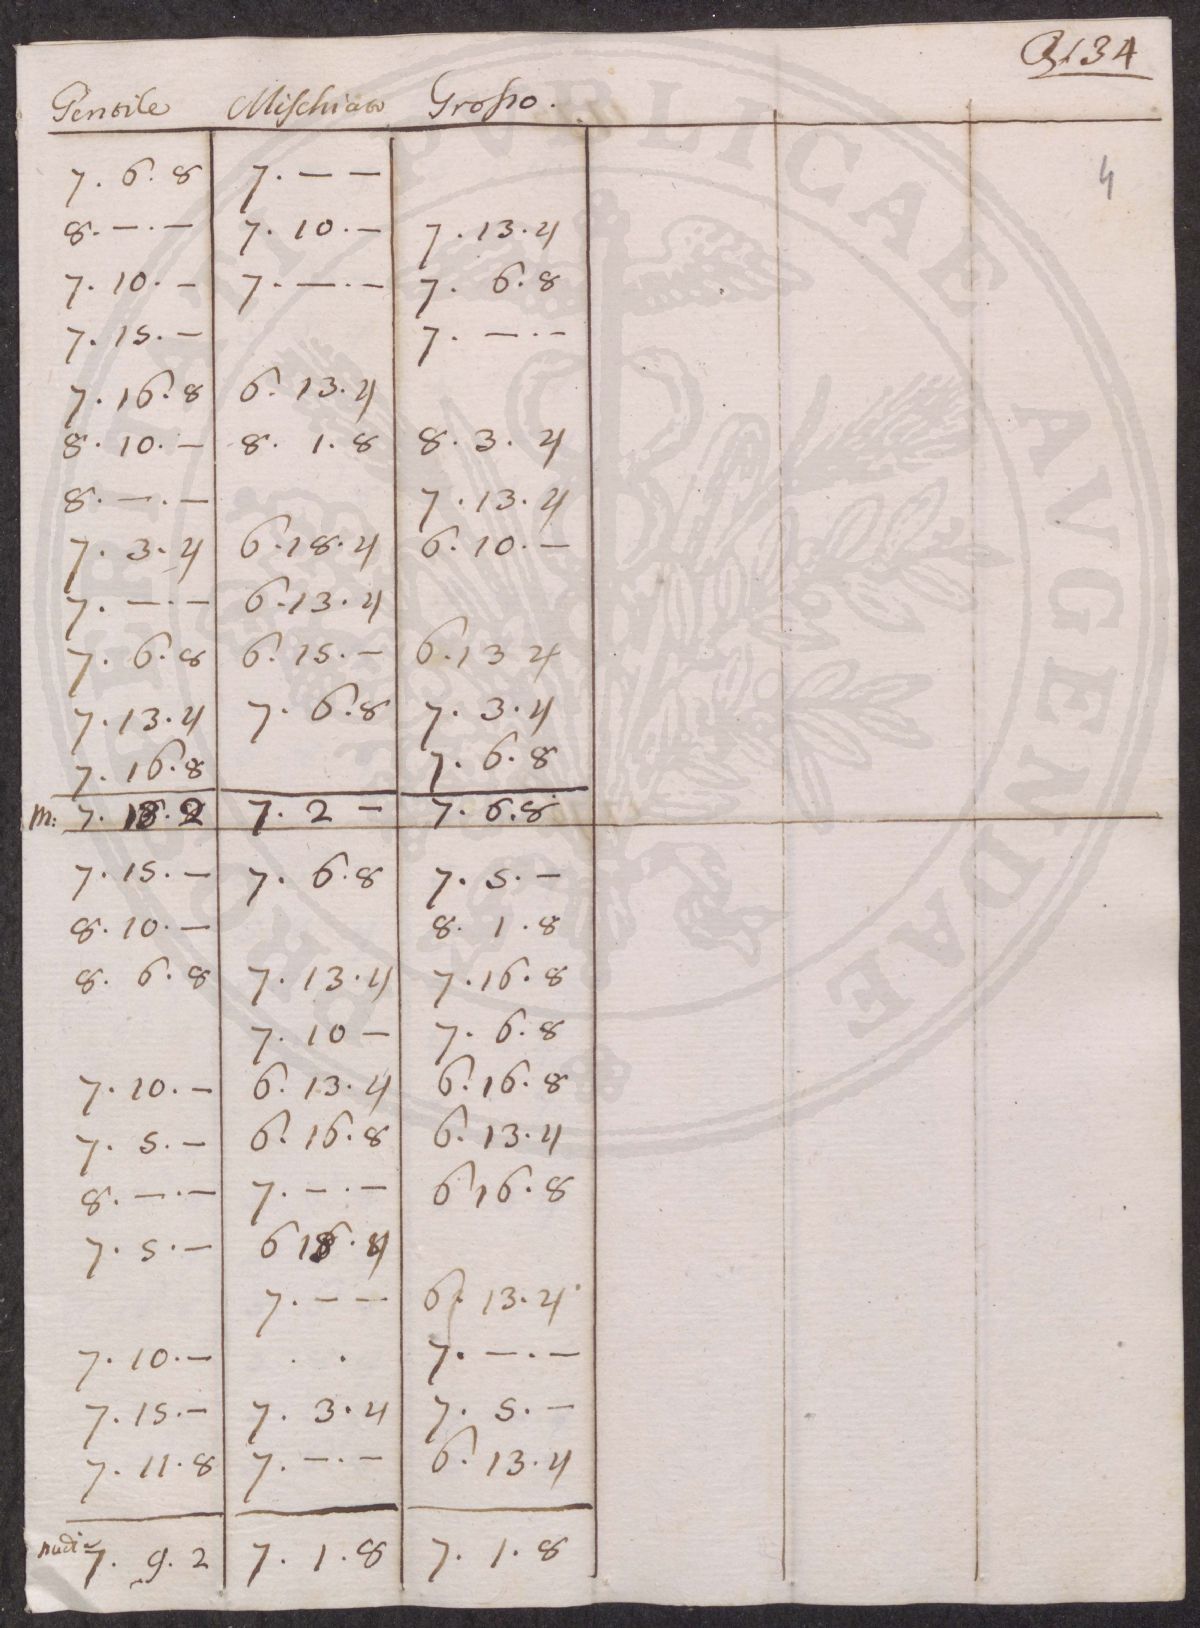 134
Gentile Mischiato Grosso.
4
7. 6. 8 7. — —
8. —. — 7. 10. — 7. 13. 4
7. 10. — 7. —. — 7. 6. 8
7. 15. — 7. —. —
7. 16. 8 6. 13. 4
8. 10. — 8. 1. 8 8. 3. 4
8. —. — 7. 13. 4
7. 3. 4 6. 18. 4 6. 10. —
7. —. — 6. 13. 4
7. 6. 8 6. 15. — 6. 13 4
7. 13. 4 7. 6. 8 7. 3. 4
7. 16. 8 7. 6. 8
m: 7. 2 — 7. 6. 8
7. 15. — 7. 6. 8 7. 5. —
8. 10. — 8. 1. 8
8. 6. 8 7. 13. 4 7. 16. 8
7. 10 — 7. 6. 8
7. 10. — 6. 13. 4 6. 16. 8
7. 5. — 6. 16. 8 6. 13. 4
8. —. — 7. —. — 6 16. 8
7. 5. —
7. — — 6. 13. 4
7. 10. — . . 7. —. —
7. 15. — 7. 3. 4 7. 5. —
7. 11. 8 7. —. — 6. 13. 4
7. 9. 2 7. 1. 8 7. 1. 8
PUBLICAE AUGENDAE